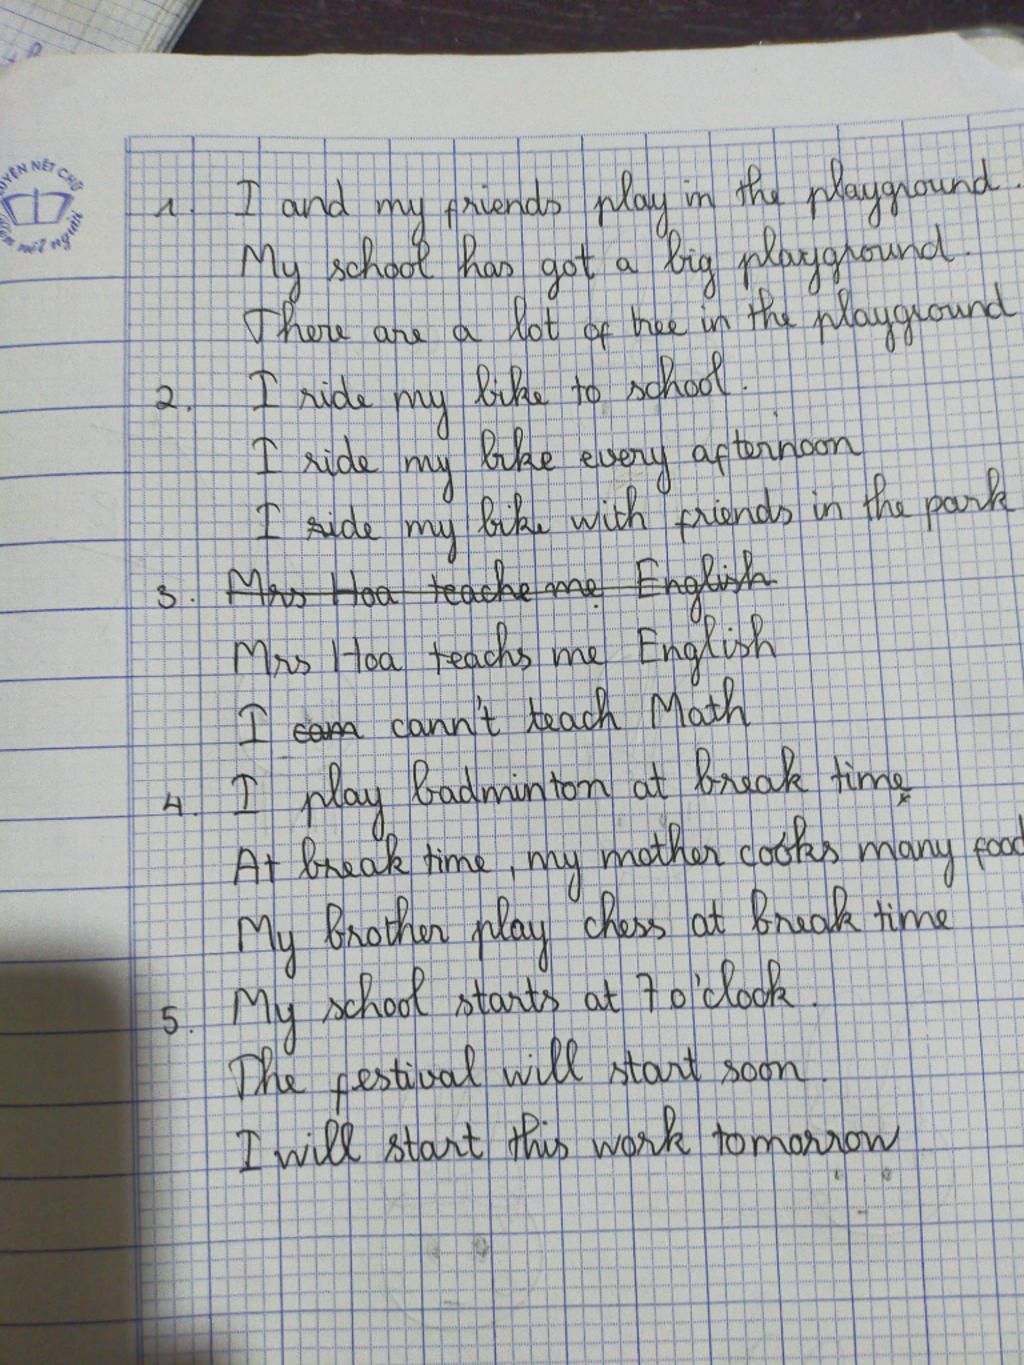 UYỆN NÉT CHỮ
1. I and my friends play in the playground.
My school has got a big playground.
There are a lot of tree in the playground
2. I ride my bike to school.
I ride my bike every afternoon
I ride my bike with friends in the park
3. Mrs Hoa teache me English
Mrs Hoa teachs me English
I cam cann't teach Math
4. I play badminton at break time
At break time, my mother cooks many food
My brother play chess at break time
5. My school starts at 7 o'clock.
The festival will start soon.
I will start this work tomorrow